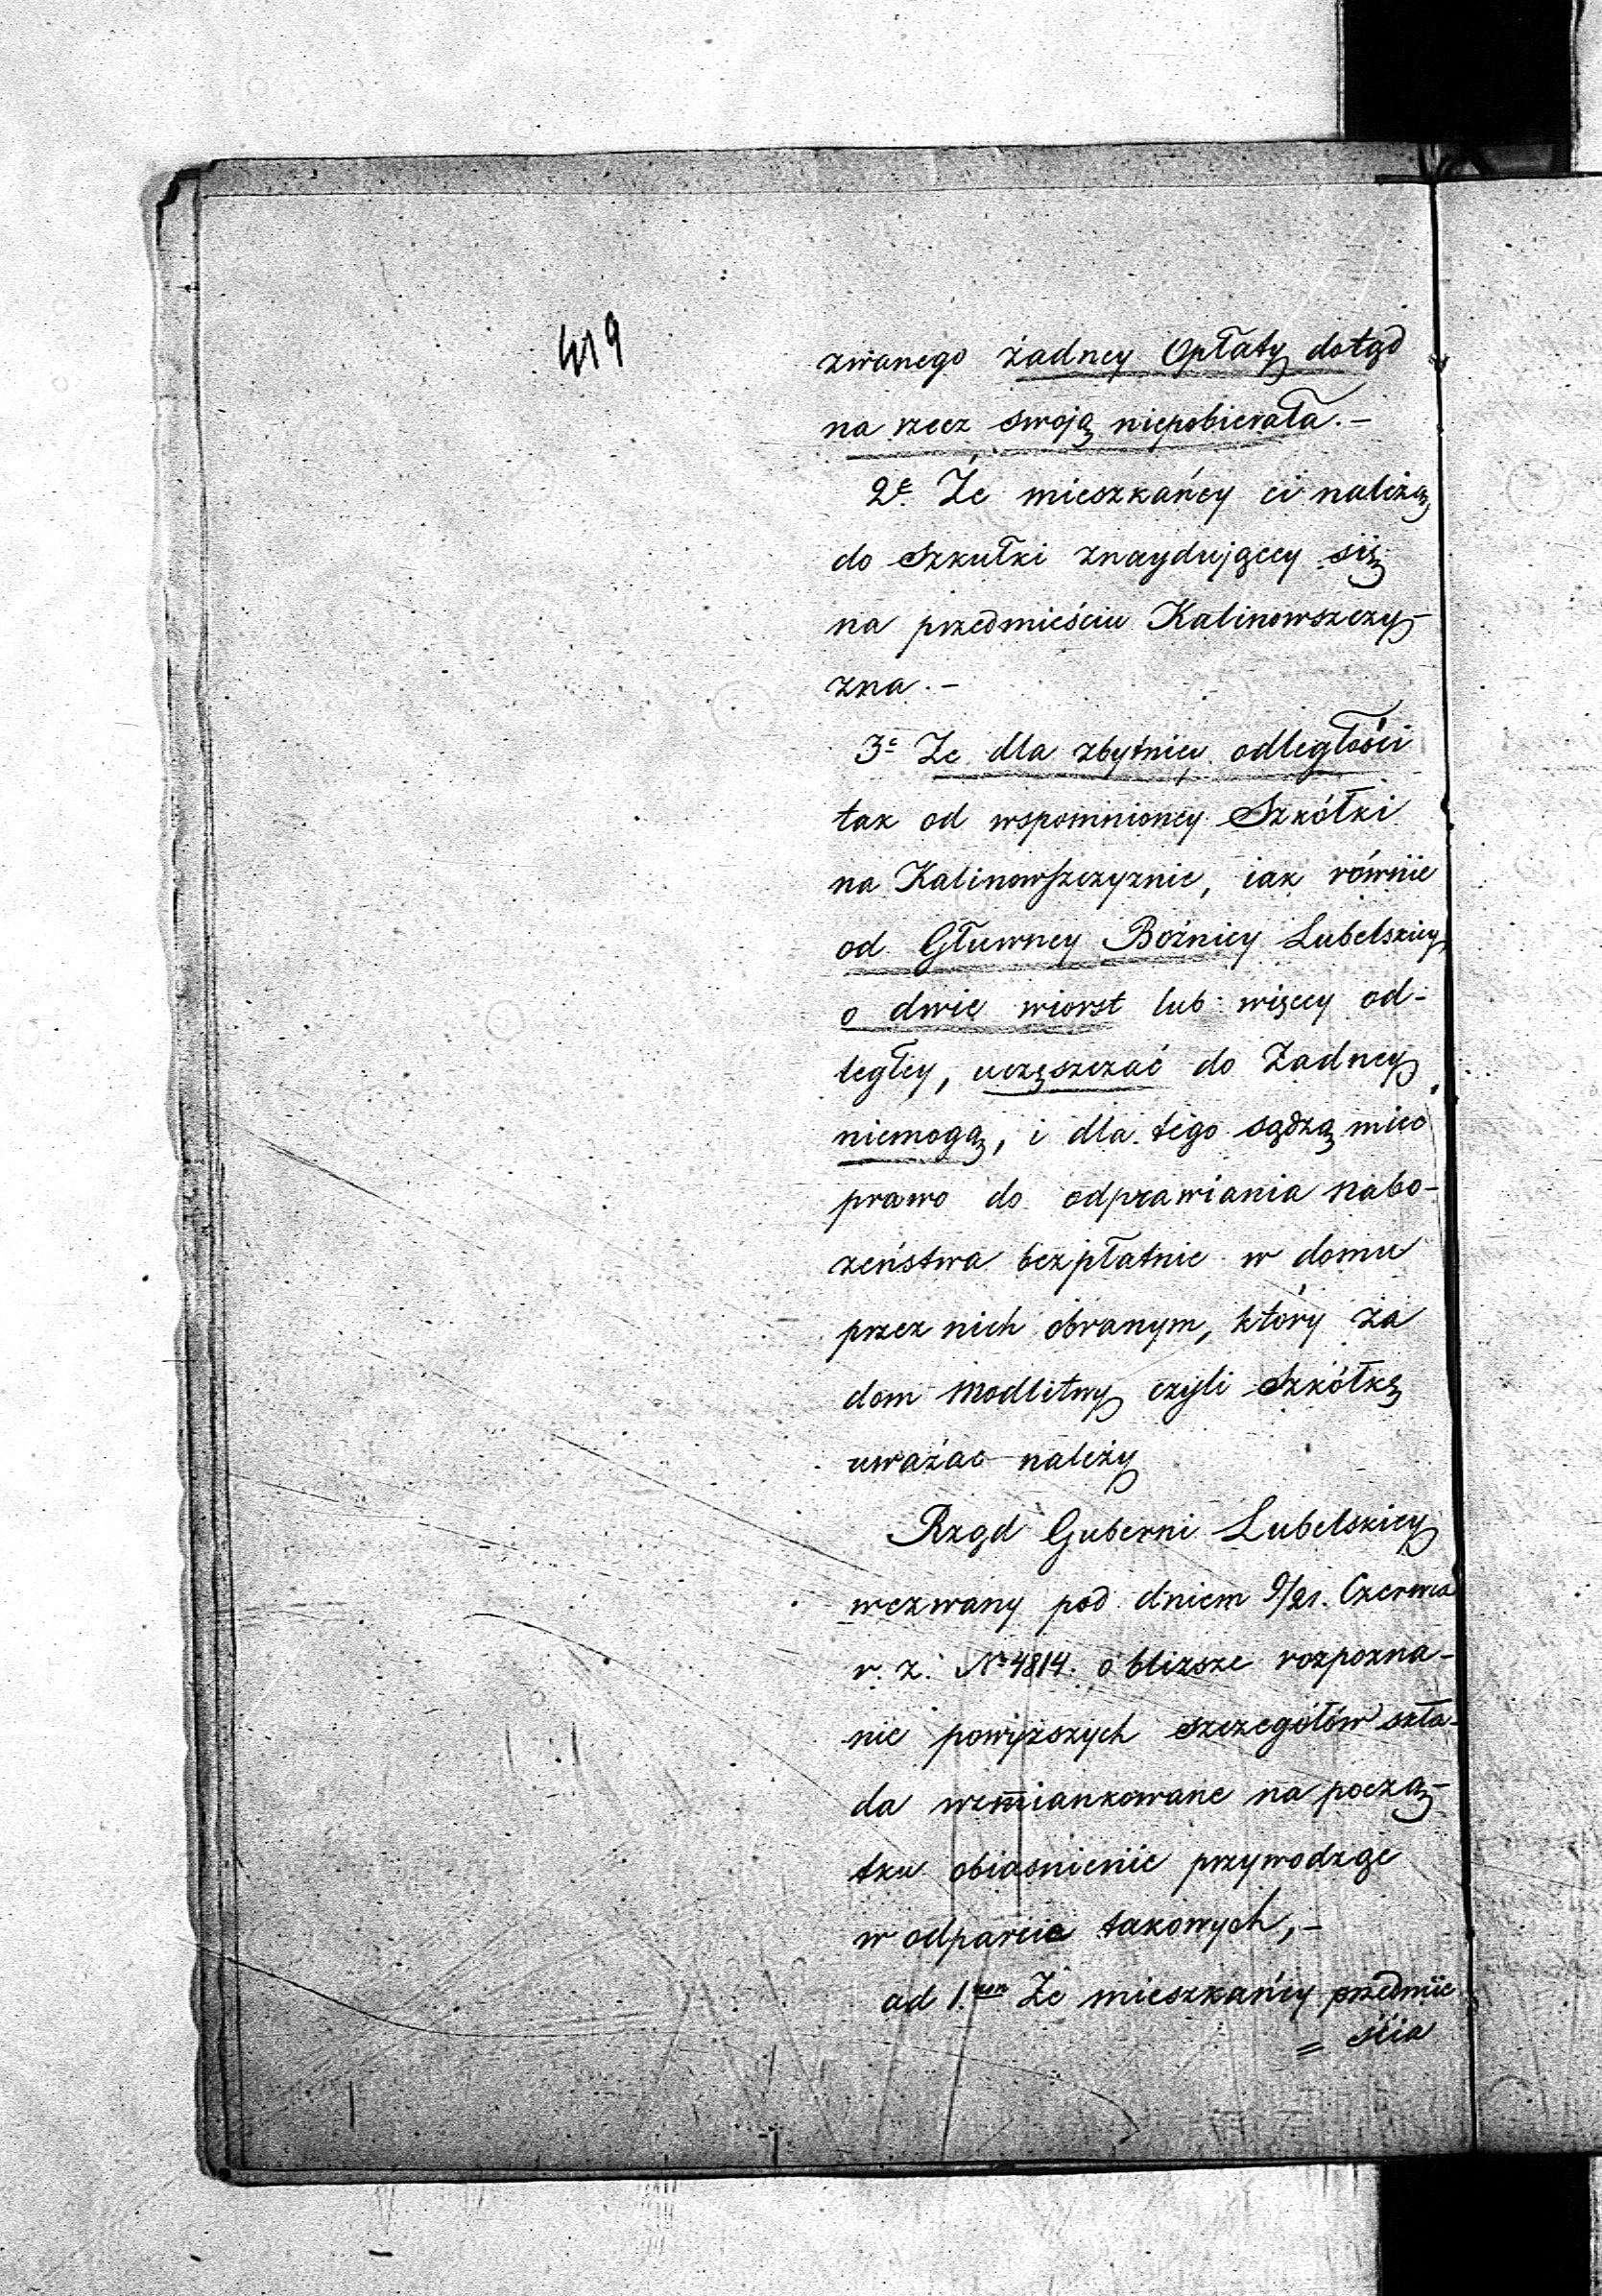 419
zwanego żadney Opłaty dotąd
na rzecz swoją niepobierała.-
2e Że mieszkańcy ci należą
do Szkułki znayduiącey się
na przedmieściu Kalinowszczy-
zna.-
3e Że dla zbytniey odległości
tak od wspomnioney Szkółki
na Kalinowszczyznie, iak równie
od Głuwney Bożnicy Lubelskiey,
o dwie wiorst lub więcey od-
ległey, uczęszczać do Żadney
niemogą, i dla tego sądzą mieć
prawo do odprawiania nabo-
żeństwa bezpłatnie w domu
przez nich obranym, który za
dom modlitwy czyli Szkółkę
uważać należy
Rząd Guberni Lubelskiey
wezwany pod dniem 9/21. Czerwca
r. z. No 4814. o bliższe rozpozna-
nie powyższych szczegółów skła-
da wzmiankowane na począ-
tku obiasnienie przywodząc
w odparcie takowych,-
ad 1.um Że mieszkańcy przedmie
= ścia